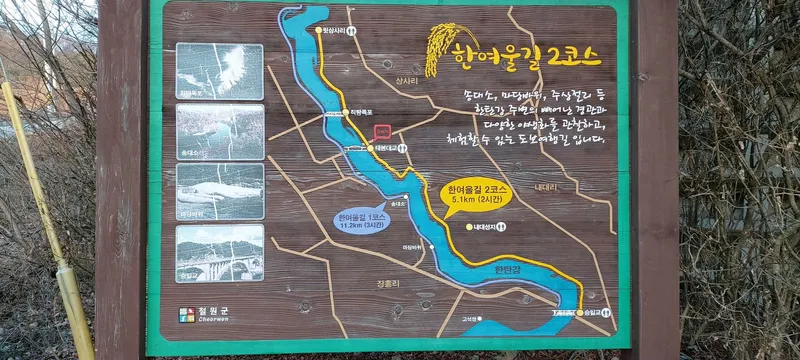 한여울길 2코스
송대소, 마당바위, 주상절리 등
한탄강 주변의 빼어난 경관과
다양한 야생화를 관찰하고,
체험할 수 있는 도보여행길 입니다.
윗상사리
상사리
직탕폭포
직탕폭포
태봉대교
송대소
송대소
한여울길 2코스
5.1km (2시간)
내대리
한여울길 1코스
11.2km (3시간)
내대성지
마당바위
마당바위
한탄강
장흥리
승일교
고석정
승일교
철원군
Cheorwon